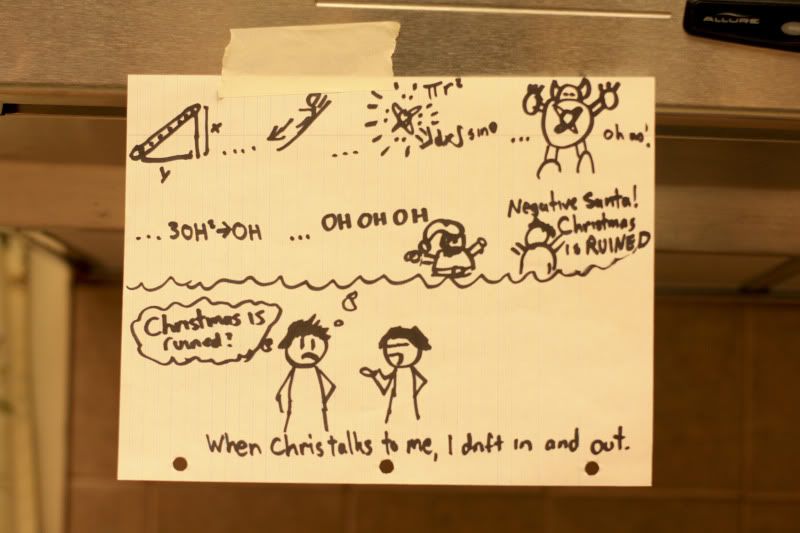 ALLURE
πr²
x
dx∫ sinθ
y
....
...
...
oh no!
... 3OH² → OH ... OH OH OH
Negative Santa!
Christmas
is RUINED
Christmas is
ruined?
When Chris talks to me, I drift in and out.